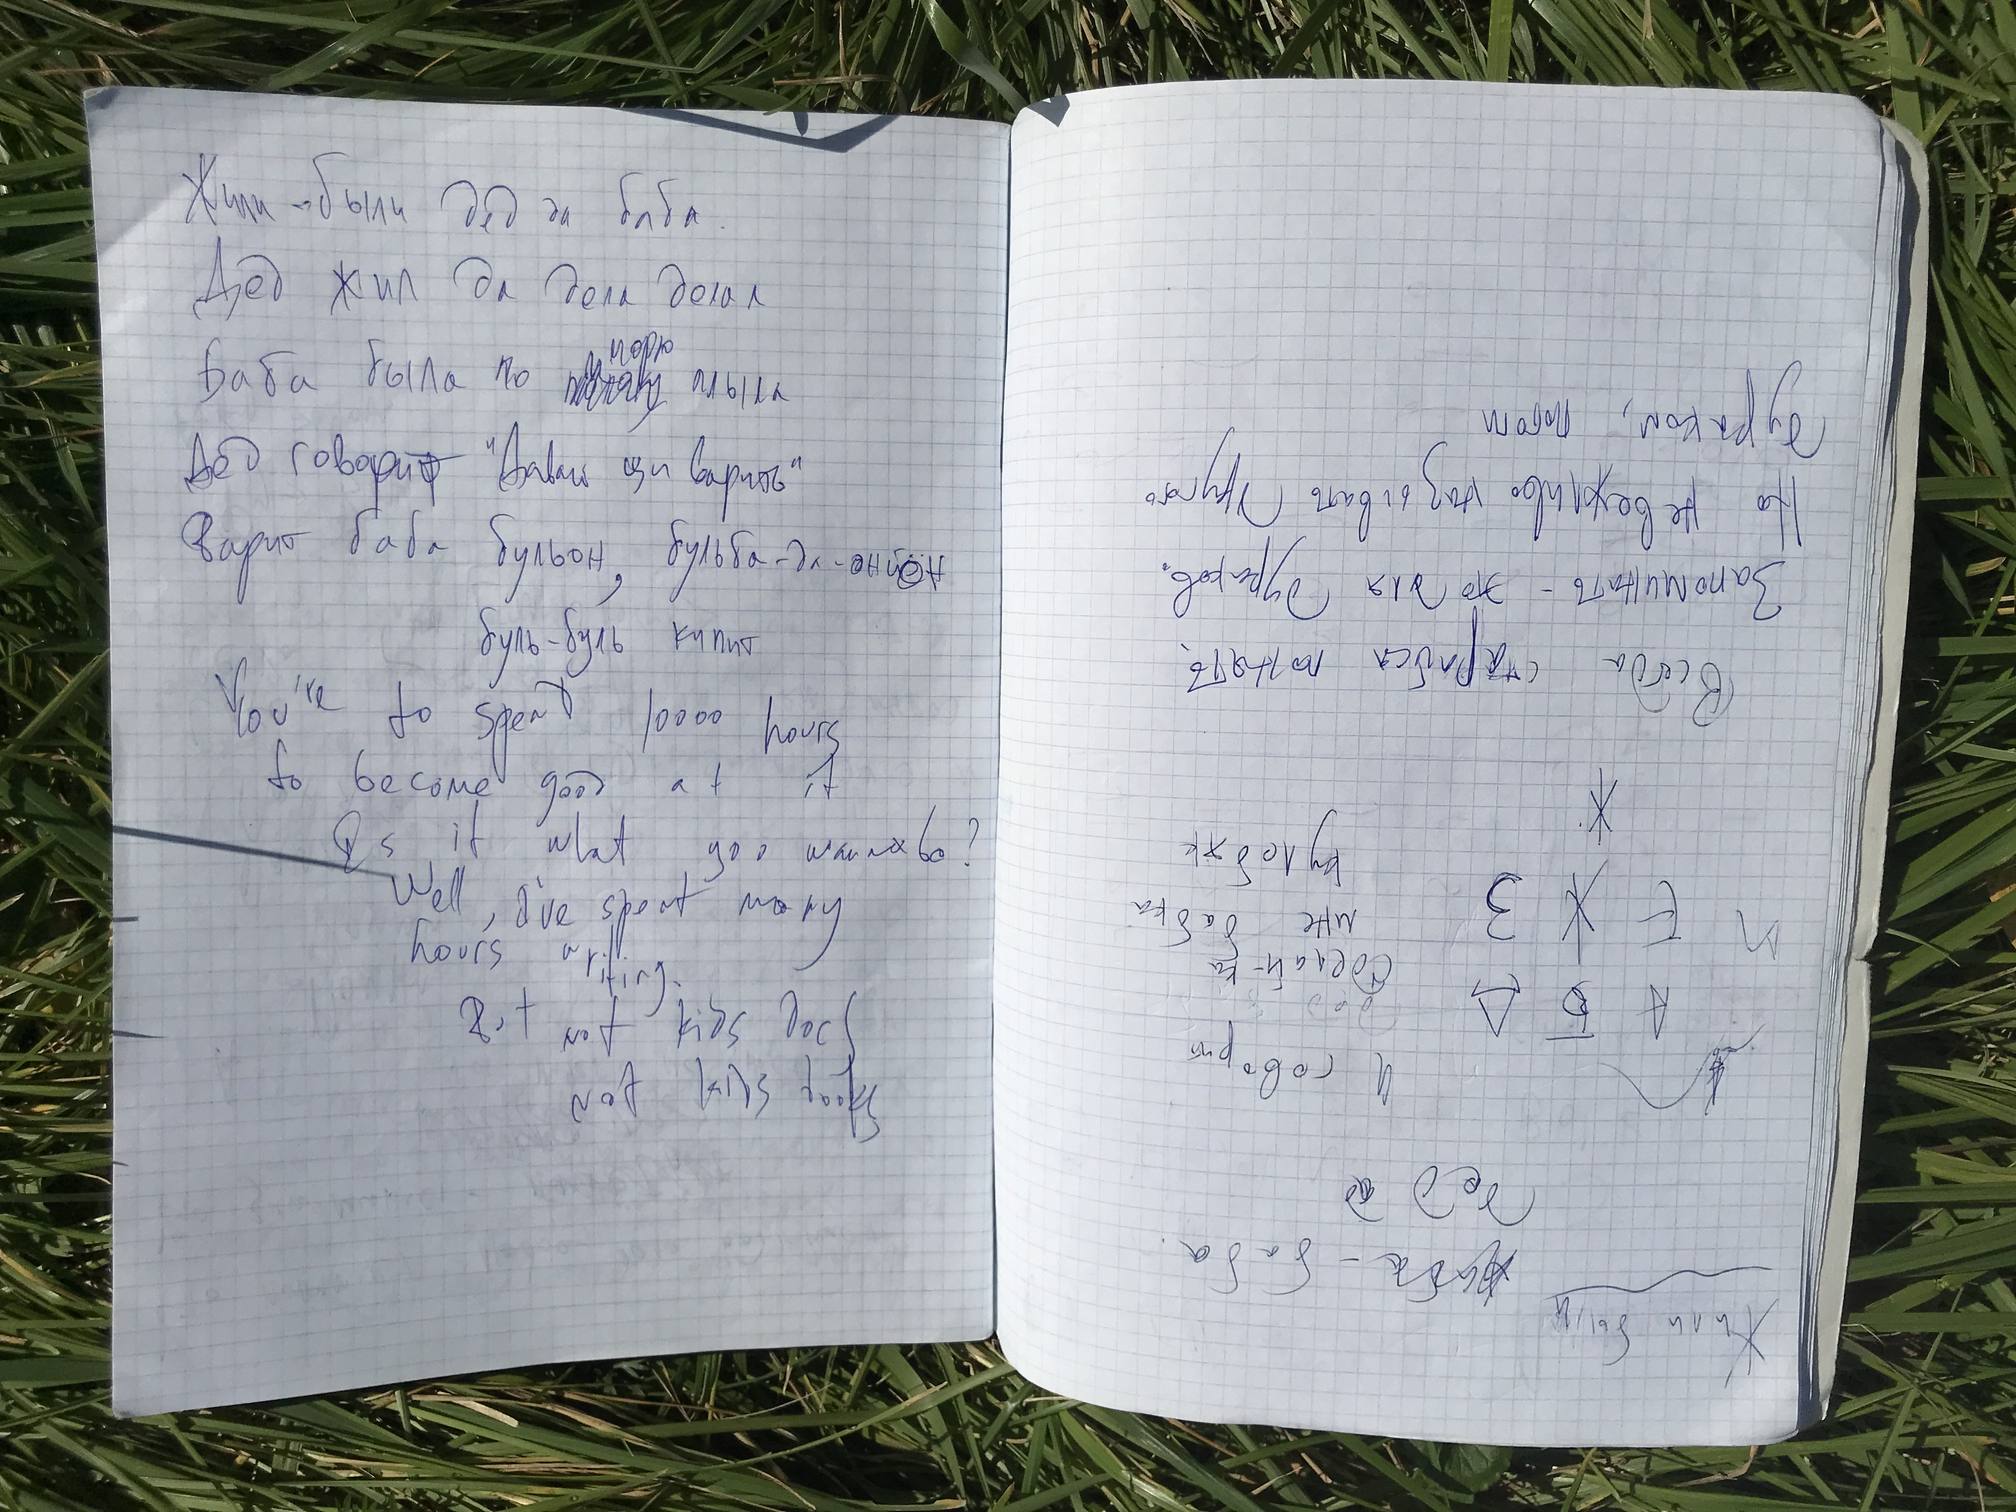 Жили-были дед да баба.
Дед жил да дела делал
Баба была по морю плыла
Дед говорит "Давай щи варить"
Варит баба бульон, бульба-да-
буль-буль кипит
You're to spend 10000 hours
to become good at it
Is it what you wanna be?
Well, I've spent many
hours writing.
But not kids
not kids books
Жили были
баба.
дед
И говорит
дед
Сделай-ка
мне бабка
А Б Д
Е Ж З
Ж
Всегда старайся понять.
Запоминать - это для дураков.
Но не вежливо называть другого
дураком,